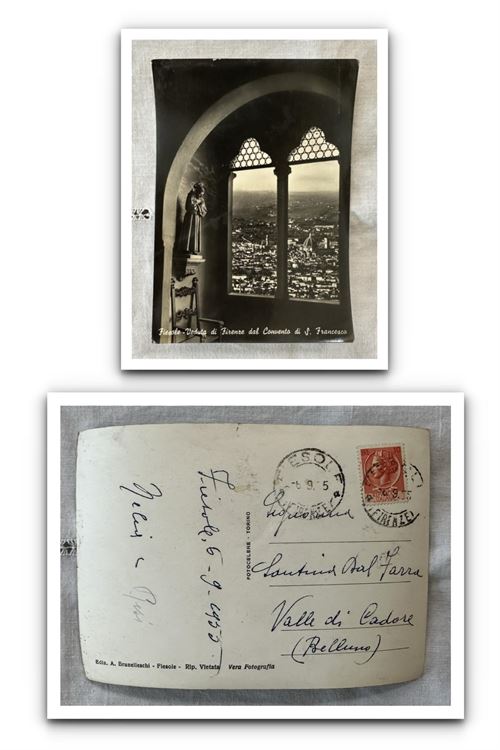 Fiesole - Veduta di Firenze dal Convento di S. Francesco
Fiesole, 6-9-1953
FOTOCELERE - TORINO
FIESOLE
(FIRENZE)
Signorina
Santina Dal Farra
Valle di Cadore
(Belluno)
Ediz. A. Brunelleschi - Fiesole - Rip. Vietata Vera Fotografia